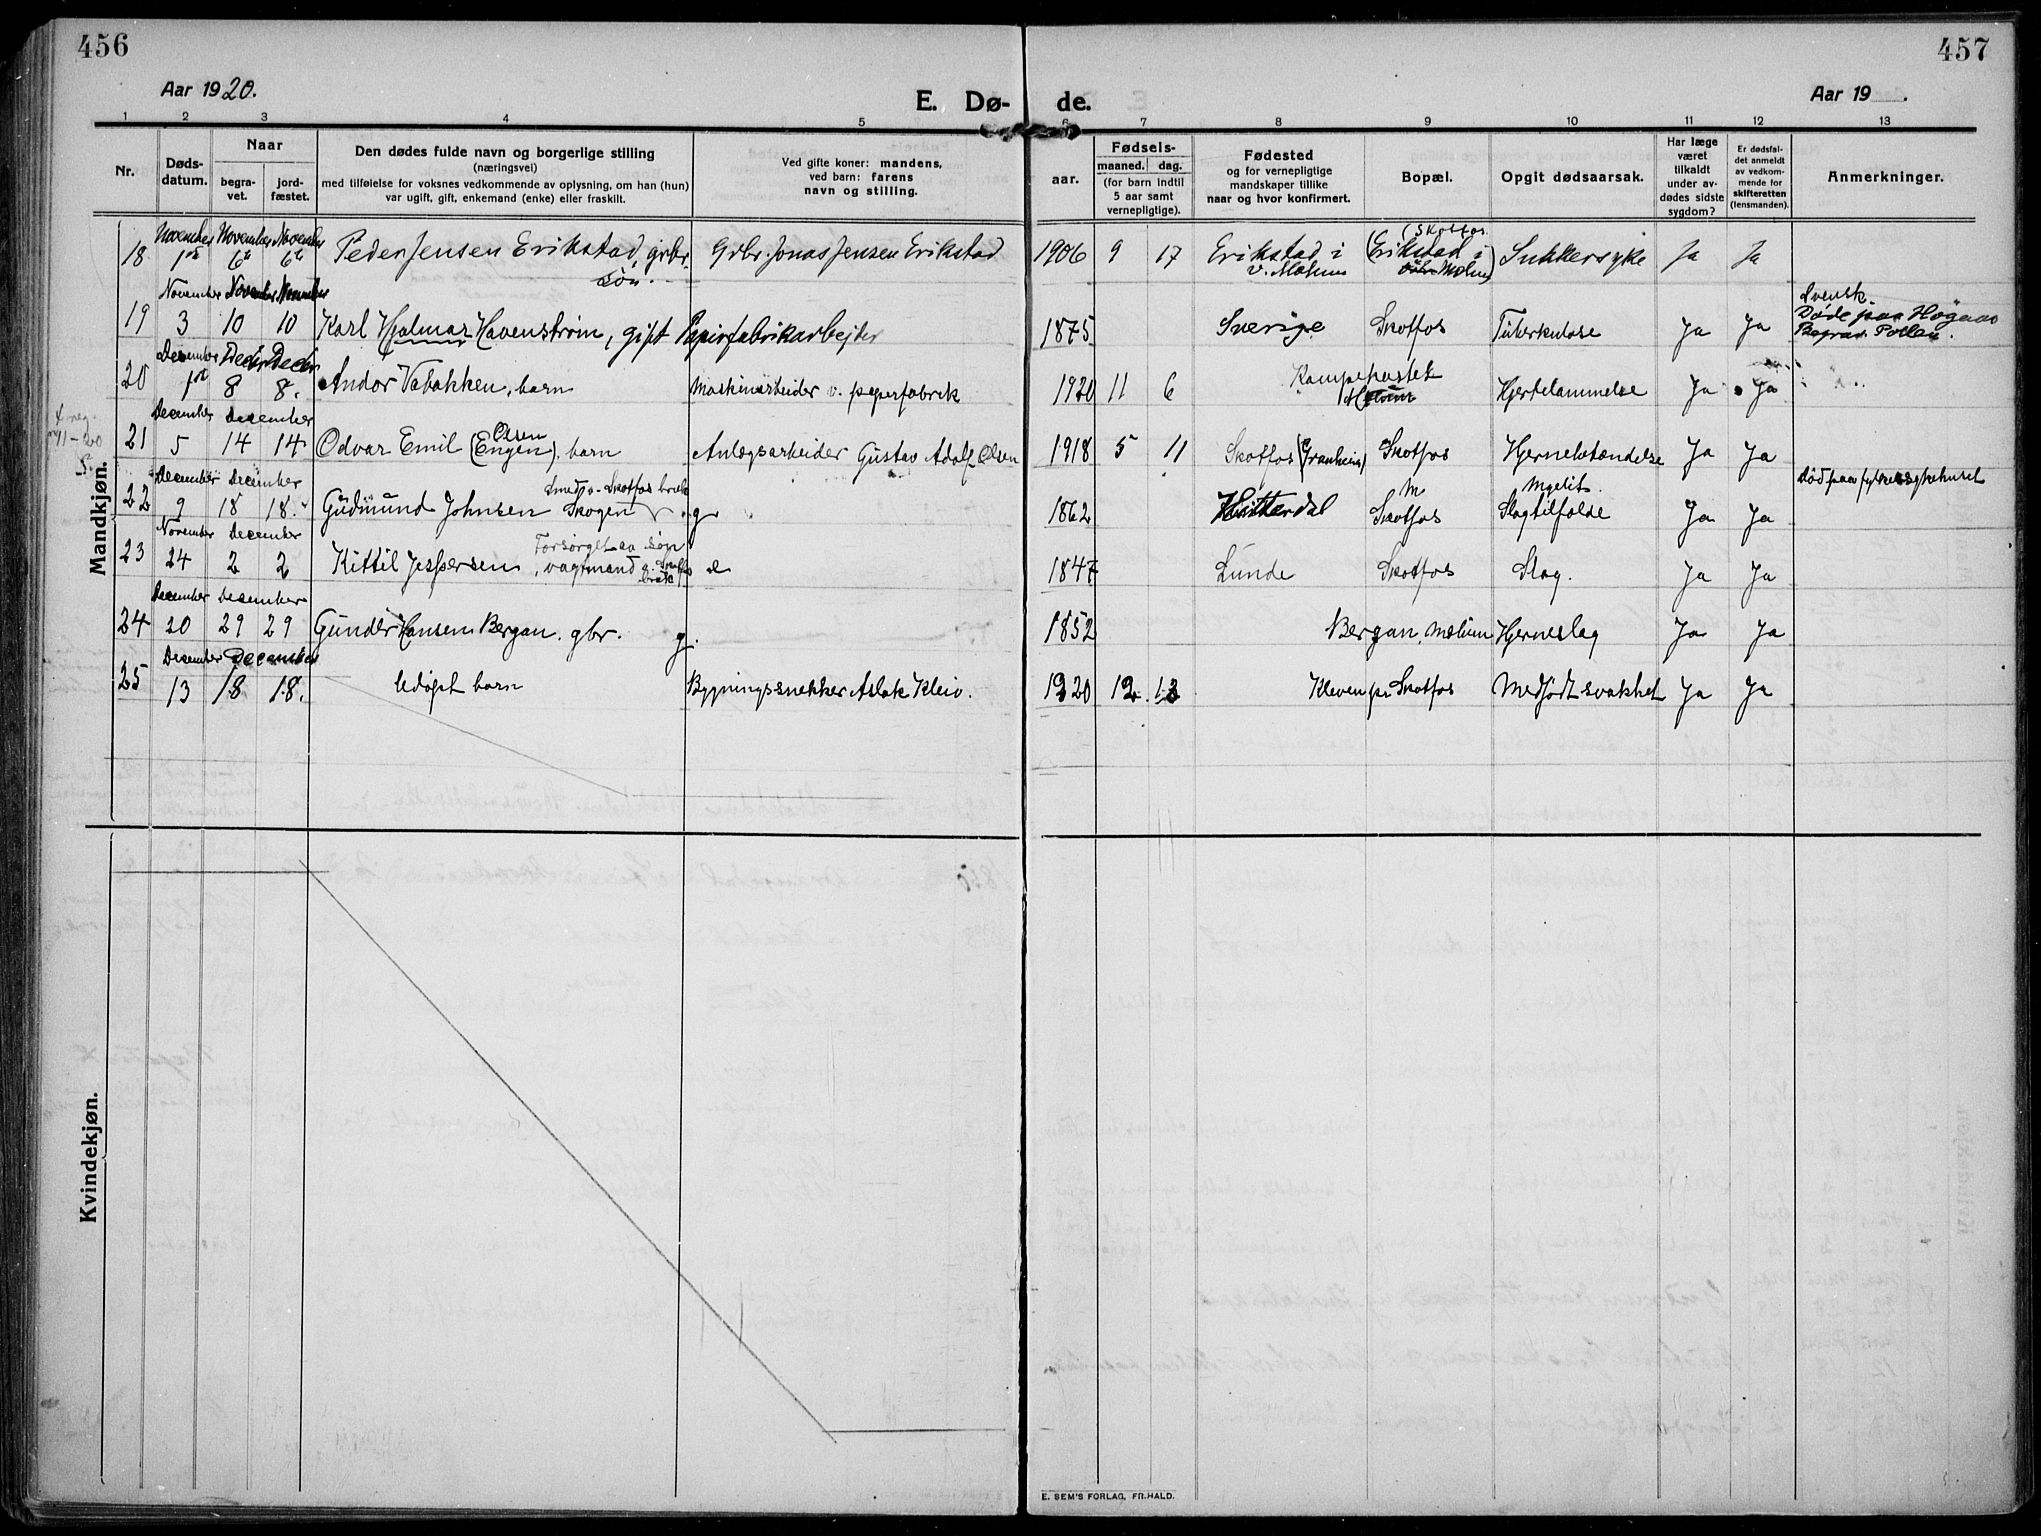 456
457
Aar 1920.
E. Dø-
de.
Aar 19 .
1 2 3 4 5 6 7 8 9 10 11 12 13
Nr.
Døds-
datum.
Naar
begra-
vet.
jord-
fæstet.
Den dødes fulde navn og borgerlige stilling
(næringsvei)
med tilføielse for voksnes vedkommende av oplysning, om han (hun)
var ugift, gift, enkemand (enke) eller fraskilt.
Ved gifte koner: mandens,
ved barn: farens
navn og stilling.
Fødsels-
aar.
maaned. dag.
(for barn indtil
5 aar samt
vernepligtige).
Fødested
og for vernepligtige
mandskaper tillike
naar og hvor konfirmert.
Bopæl.
Opgit dødsaarsak.
Har læge
været
tilkaldt
under av-
dødes sidste
sygdom?
Er dødsfal-
det anmeldt
av vedkom-
mende for
skifteretten
(lensmanden).
Anmerkninger.
Mandkjøn.
November November November (Skotfos
18 1ste 6te 6te Peder Jensen Erikstad, grbr. Grbr. Jonas Jensen Erikstad 1906 9 17 Erikstad i Erikstad i Sukkersyke Ja Ja
søn. v. Mælum Mælum)
November November November Svensk.
19 3 10 10 Karl Hjalmar Havenstrøm, gift Papirfabrikarbejder 1875 Sverige Skotfos Tuberkulose Ja Ja Døde paa Høgaas
Begrav. Pollen.
December Decbr Decbr
20 1st 8 8. Andor Vabakken, barn Maskinarbeider v. papirfabrik 1920 11 6 Hjertelammelse Ja Ja
December December
Olsen
21 5 14 14 Odvar Emil (Engen), barn Anlægsarbeider Gustav Adolf Olsen 1918 5 11 Skotfos (Granheim) Skotfos Hjernebetændelse Ja Ja
December December Smed v. Skotfos bruk Myelit. Død paa fylkessykehuset
22 9 18 18. Gudmund Johnsen Skogen g 1862 Hitterdal Skotfos Slagtilfælde Ja Ja
November December Forsørget av søn
23 24 2 2 Kittil Jespersen, vagtmand v. Skotfos bruk e 1847 Lunde Skotfos Slag. Ja Ja
December December
24 20 29 29 Gunder Hansen Bergan. gbr. g. 1852 Bergan, Mælum Hjerneslag Ja Ja
December December
25 13 18 18. Udøpt barn Bygningssnekker Aslak Kleiv. 1920 12. 13 Kleven pr Skotfos Medfødt svakhet Ja Ja
Kvindekjøn.
E. SEM'S FORLAG, FR.HALD.